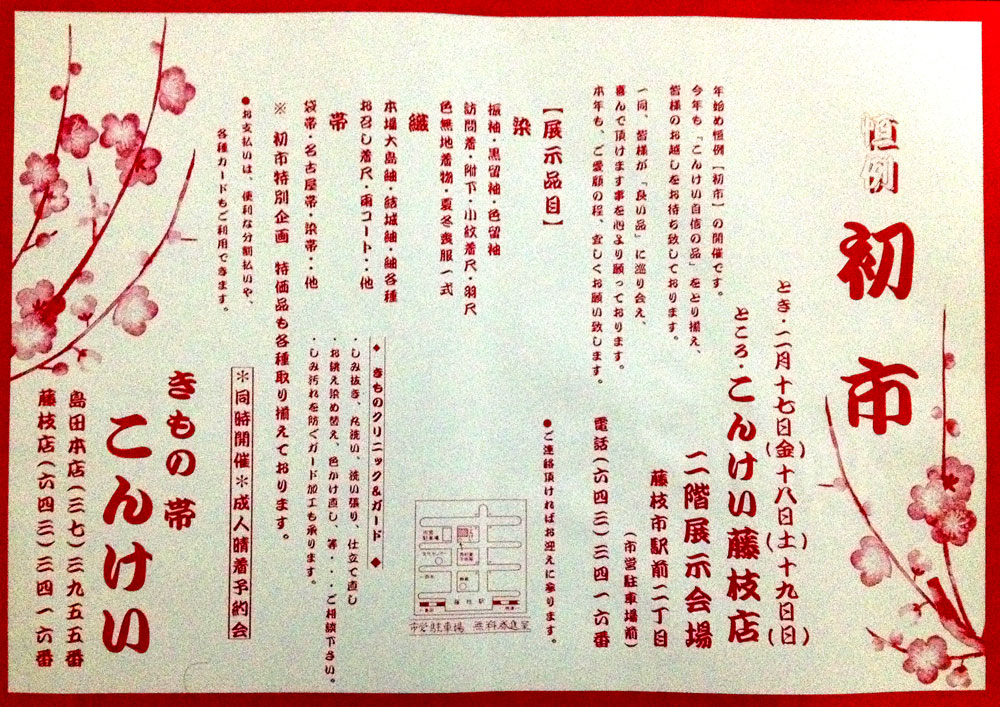 恒例
初市
とき・二月十七日(金)十八日(土)十九日(日)
ところ・こんけい藤枝店
二階展示会場
藤枝市駅前二丁目
(市営駐車場前)
電話(六四三)三四一六番
●ご連絡頂ければお迎えに参ります。
年始め恒例「初市」の開催です。
今年も「こんけい自信の品」をとり揃え、
皆様のお越しをお待ち致しております。
一同、皆様が「良い品」に巡り会え、
喜んで頂けます事を心より願っております。
本年も、ご愛顧の程、宜しくお願い致します。
【展示品目】
染
振袖・黒留袖・色留袖
訪問着・附下・小紋着尺・羽尺
色無地着物・夏冬喪服一式
織
本場大島紬・結城紬・紬各種
お召し着尺・雨コート・・他
帯
袋帯・名古屋帯・染帯・・他
※ 初市特別企画 特価品も各種取り揃えております。
●お支払いは、便利な分割払いや、
各種カードもご利用できます。
◆ きものクリニック&ガード ◆
・しみ抜き、丸洗い、洗い張り、仕立て直し
・お誂え染め替え、色かけ直し、等・・・ご相談下さい。
・しみ汚れを防ぐガード加工も承ります。
市営駐車場 無料券進呈
＊同時開催＊成人晴着予約会
きもの 帯
こんけい
島田本店(三七)三九五五番
藤枝店(六四三)三四一六番